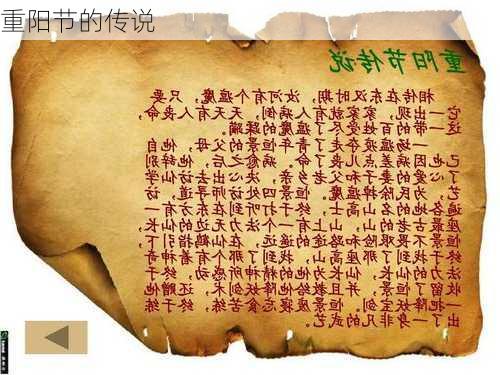 重阳节的传说
重阳节传说
相传在东汉时期，汝河有个瘟魔，只要
它一出现，家家就有人病倒，天天有人丧命，
这一带的百姓受尽了瘟魔的蹂躏。
一场瘟疫夺走了青年恒景的父母，他自
己也因病差点儿丧了命。病愈之后，他辞别
了心爱的妻子和父老乡亲，决心出去访仙学
艺，为民除掉瘟魔。恒景四处访师寻道，访
遍各地的名山高士，终于打听到在东方有一
座最古老的山，山上有一个法力无边的仙长，
恒景不畏艰险和路途的遥远，在仙鹤指引下，
终于找到了那座高山，找到了那个有着神奇
法力的仙长，仙长为他的精神所感动，终于
收留了恒景，并且教给他降妖剑术，还赠他
一把降妖宝剑。恒景废寝忘食苦练，终于练
出了一身非凡的武艺。